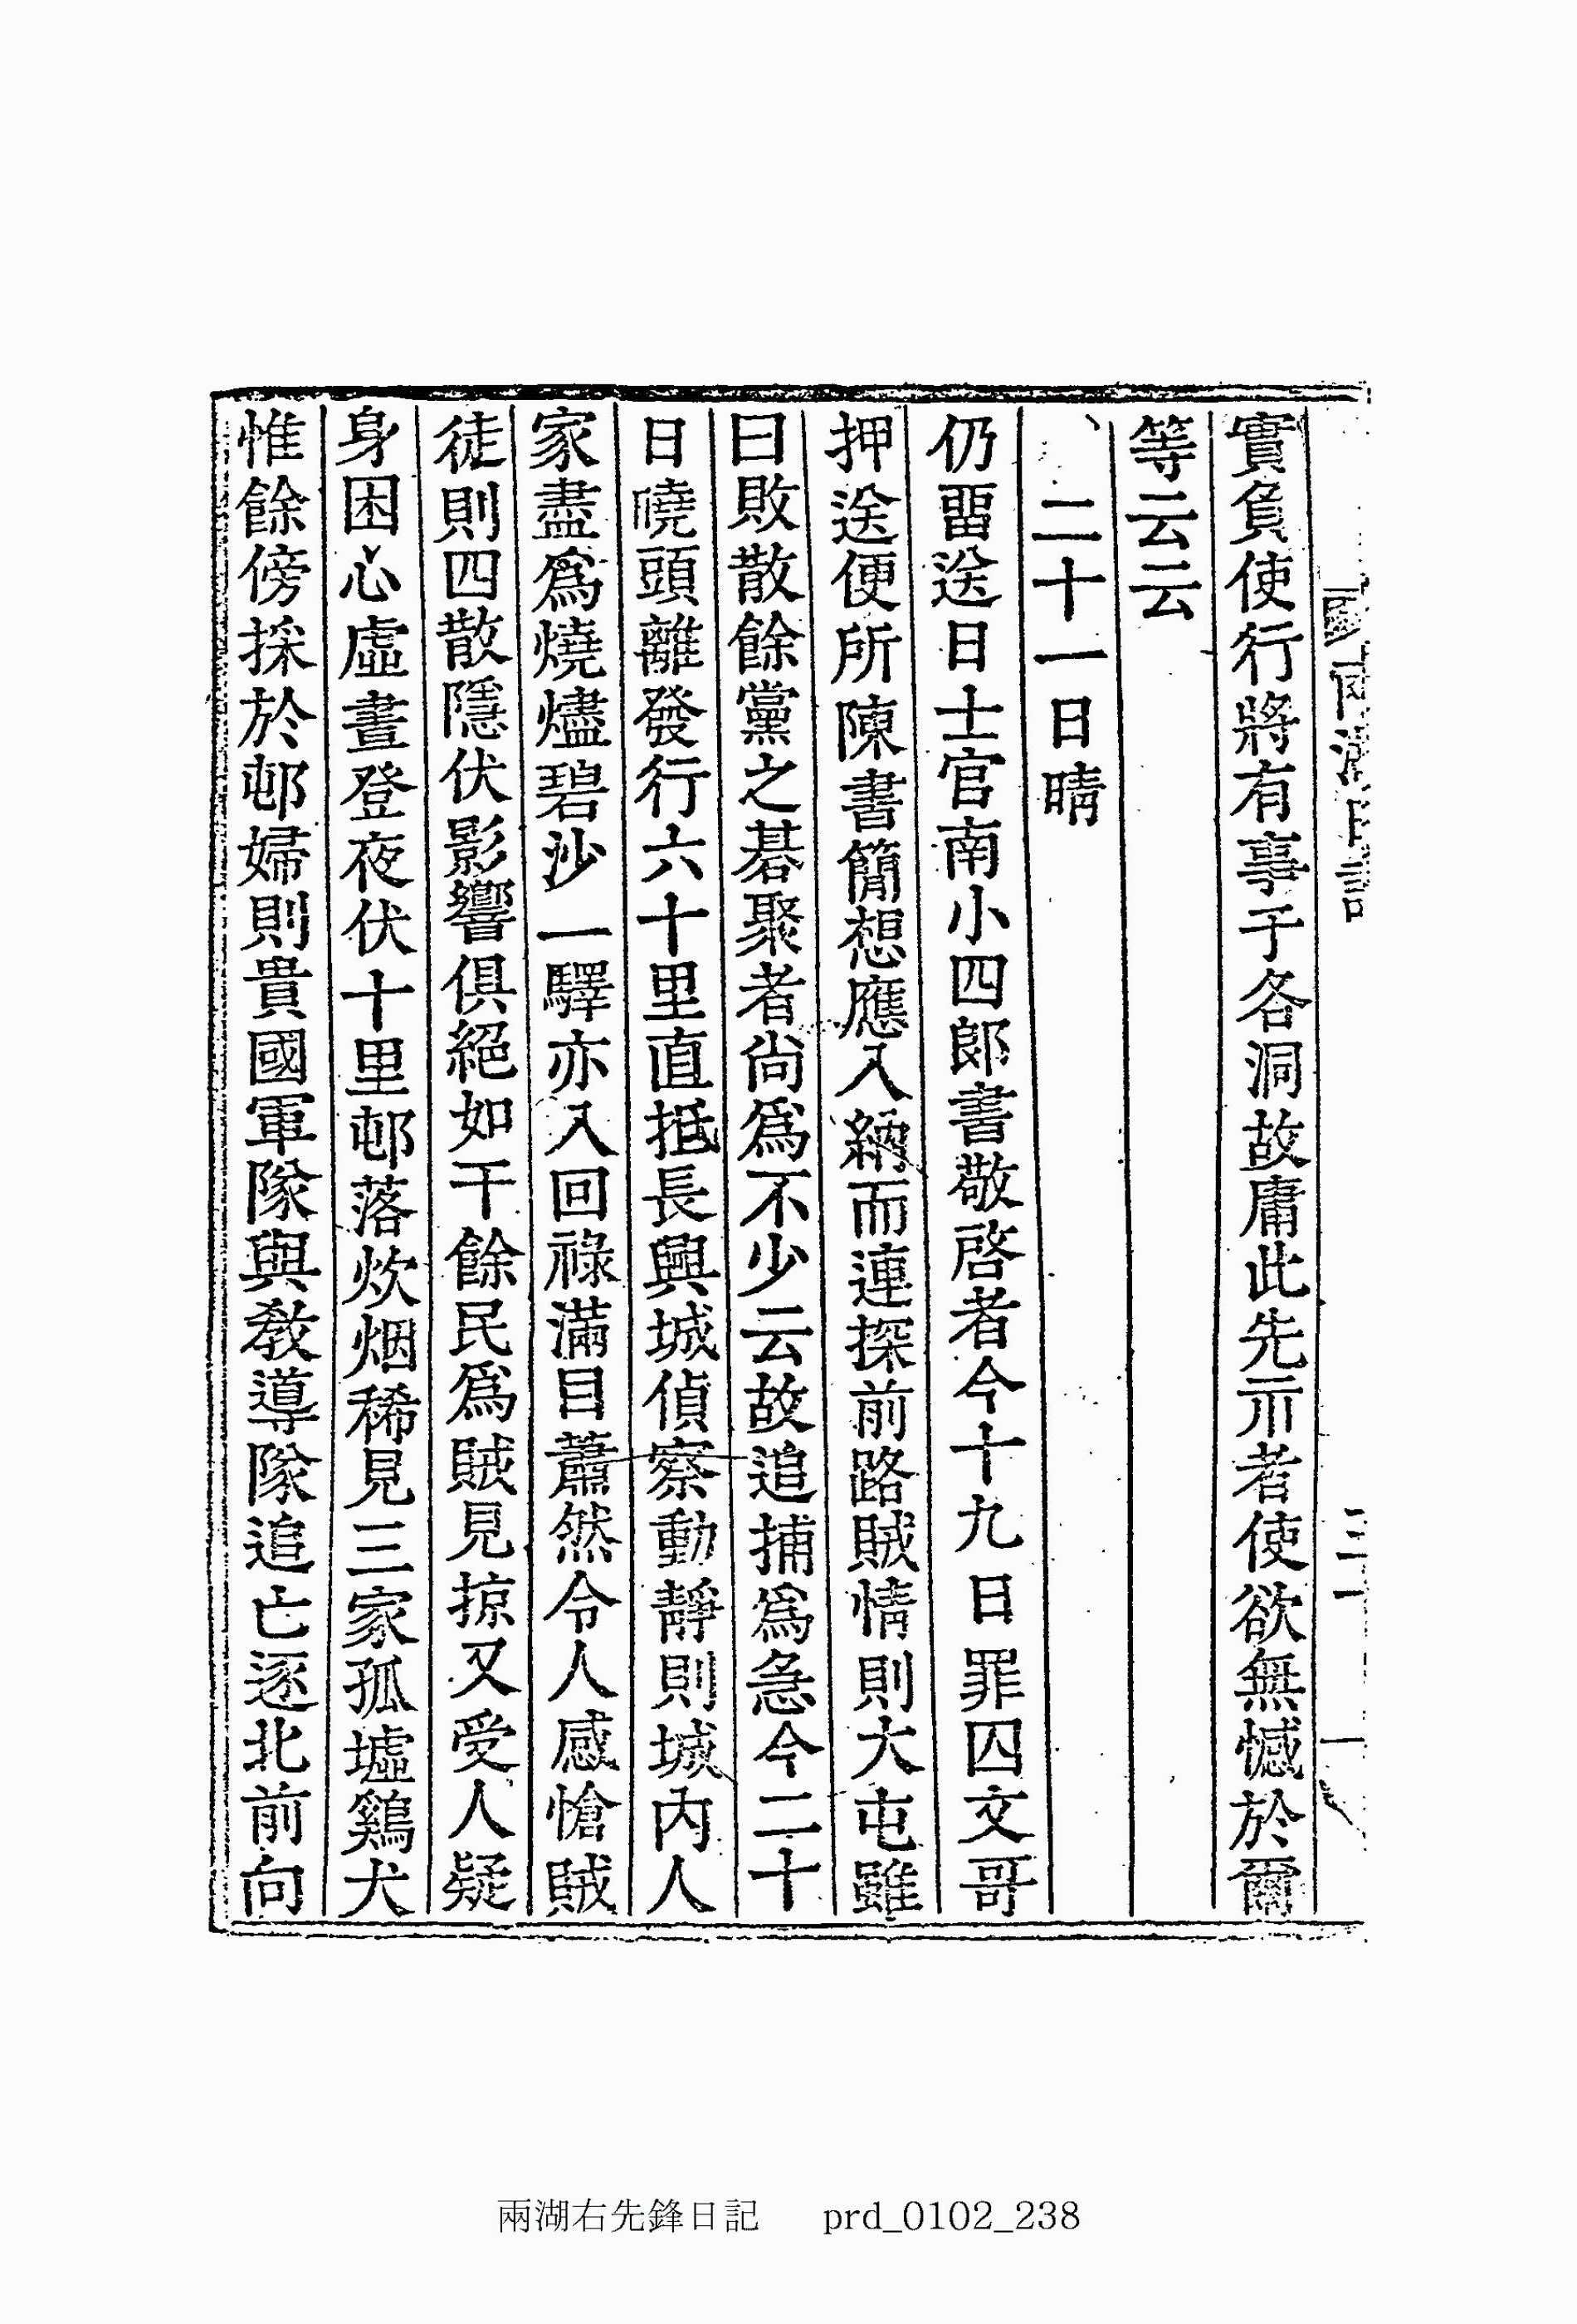 實負使行將有事于各洞故庸此先示者使欲無憾於爾
等云云
二十一日晴
仍畱送日士官南小四郞書敬啓者今十九日罪囚文哥
押送便所陳書簡想應入納而連探前路賊情則大屯雖
曰敗散餘黨之碁聚者尙爲不少云故追捕爲急今二十
日曉頭離發行六十里直抵長興城偵察動靜則城內人
家盡爲燒燼碧沙一驛亦入回祿滿目蕭然令人感愴賊
徒則四散隱伏影響俱絕如干餘民爲賊見掠又受人疑
身困心虛晝登夜伏十里邨落炊烟稀見三家孤墟鷄犬
惟餘傍採於邨婦則貴國軍隊與敎導隊追亡逐北前向
兩湖右先鋒日記 prd_0102_238